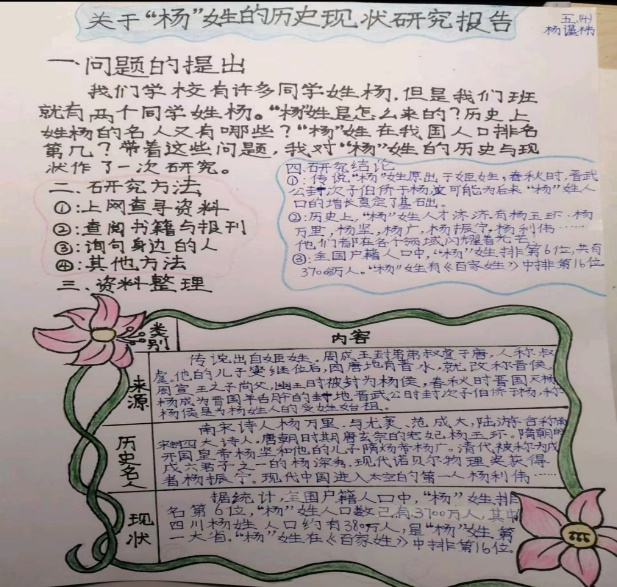 关于“杨”姓的历史现状研究报告
五.(4)
杨谨
一问题的提出
我们学校有许多同学姓杨,但是我们班
就有两个同学姓杨。“杨”姓是怎么来的?历史上
姓杨的名人又有哪些?“杨”姓在我国人口排名
第几?带着这些问题,我对“杨”姓的历史与现
状作了一次研究。
二、研究方法
①:上网查寻资料
②:查阅书籍与报刊
③:询问身边的人
④:其他方法
三、资料整理
四.研究结论
①:传说“杨”姓原出于姬姓,春秋时,晋武
公封次子伯侨于杨,这可能为后来“杨”姓人
口的增长奠定了基础。
②:历史上,“杨”姓人才济济有杨玉环.杨
万里,杨坚,杨广,杨振宁,杨利伟……
他们都在各个领域闪耀着光芒。
③:全国户籍人口中,“杨”姓排第6位,共有
3700万人。“杨”姓有《百家姓》中排第16位
类别 内容
来源
传说出自姬姓。周成王封弟弟叔虞于唐,人称叔
虞,他的儿子燮继位后,因唐地有晋水,就改称晋侯。
周宣王之子尚父,幽王时被封为杨侯,春秋时晋国灭杨
杨成为晋国羊舌肸的封地,晋武公时封次子伯侨于杨,称
杨侯是为杨姓人的受姓始祖。
历史名人
南宋诗人杨万里.与尤袤、范成大,陆游合称南
宋四大诗人,唐朝时期唐玄宗的宠妃杨玉环。隋朝的
开国皇帝杨坚和他的儿子隋炀帝杨广。清代被称为戊
戌六君子之一的杨深秀,现代诺贝尔物理奖获得
者杨振宁。现代中国进入太空的第一人杨利伟……
现状
据统计,全国户籍人口中,“杨”姓排
名第6位,“杨”姓人口数已有3700万人,其中
四川杨姓人口约有380万人,是“杨”姓第
一大省。“杨”姓在《百家姓》中排第16位